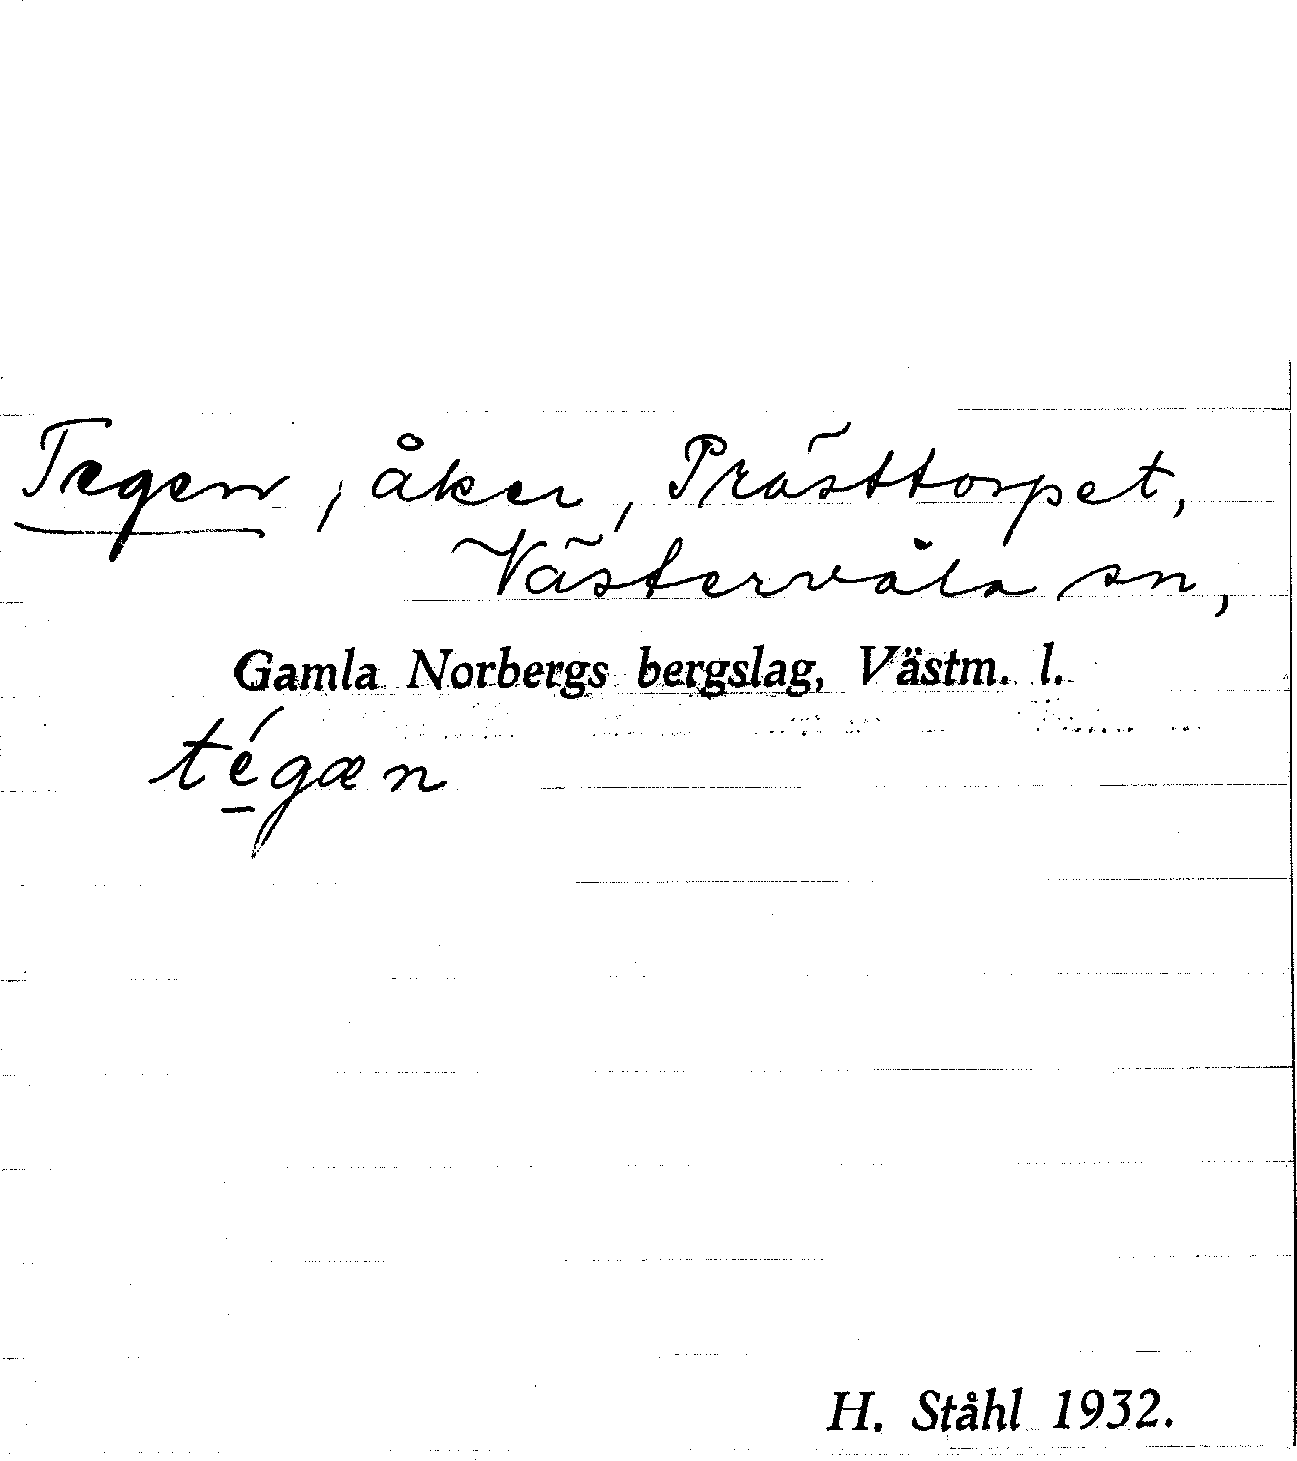 Tegen, åker, Prästtorpet,
Västervåla sn,
Gamla Norbergs bergslag, Västm. l.
tégæn
H. Ståhl 1932.